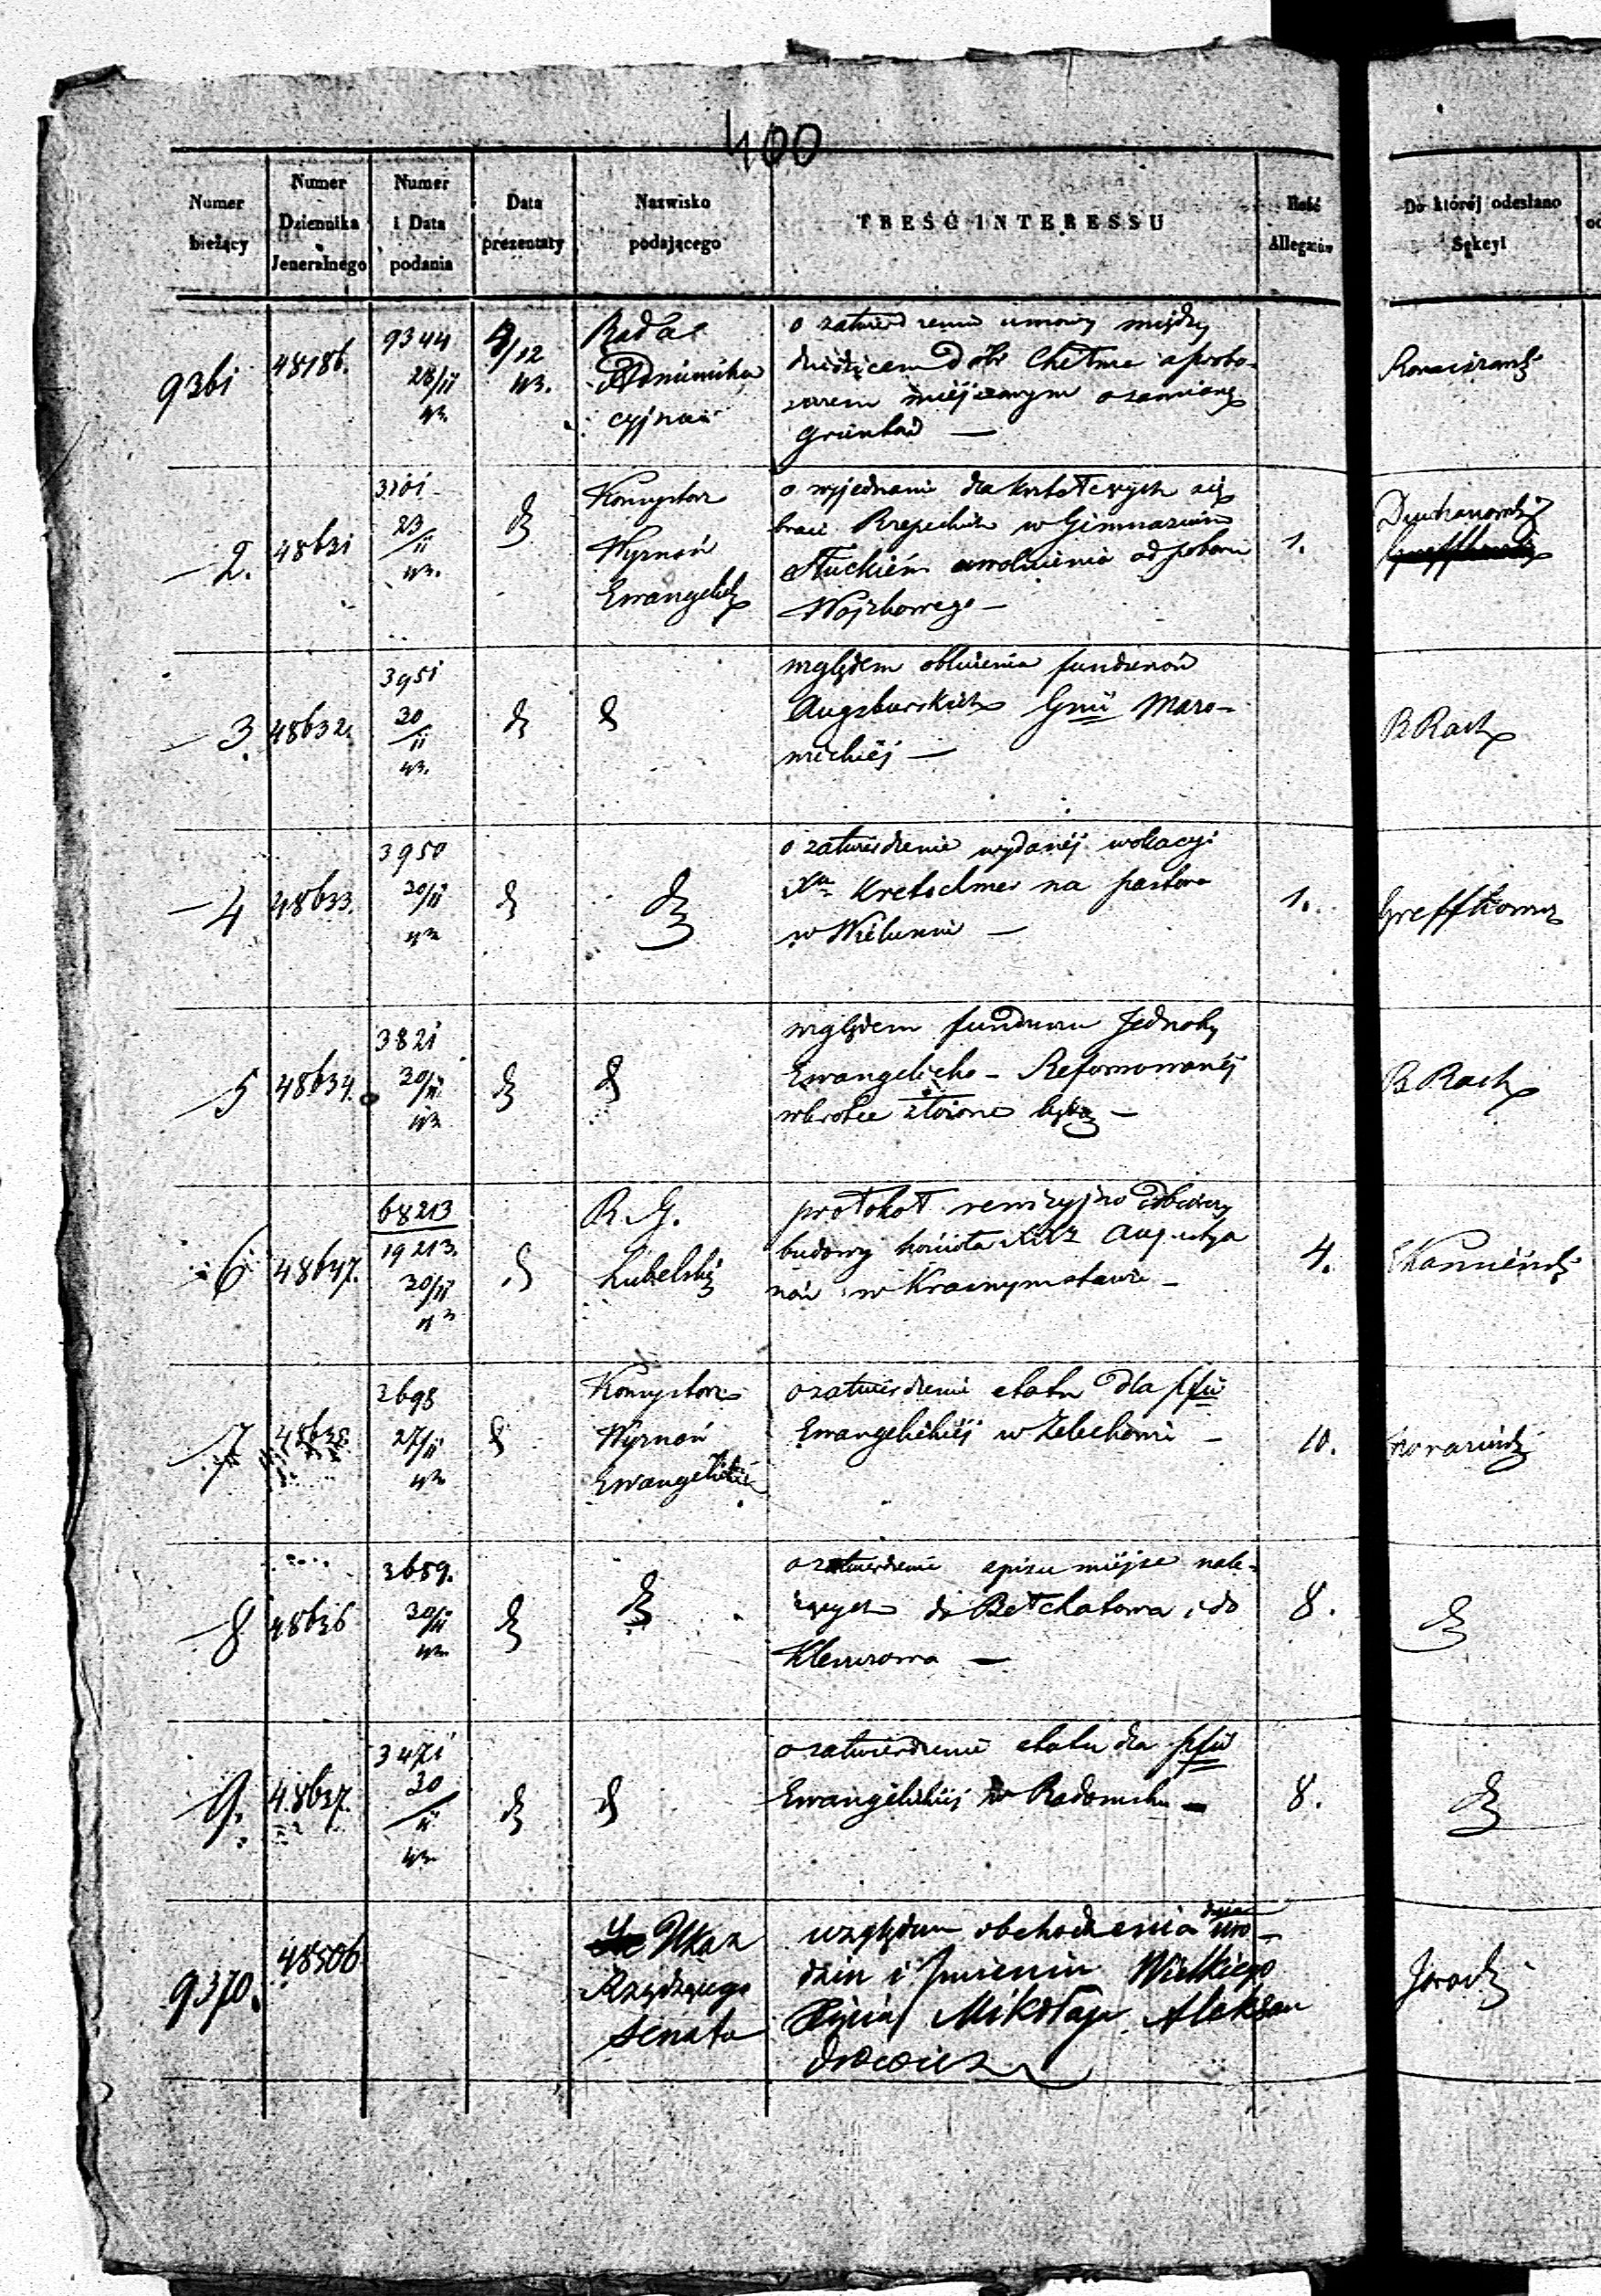 400
Numer bieżący
Numer Dziennika Jeneralnego
Numer i Data podania
Data prezentaty
Nazwisko podającego
TREŚĆ INTERESSU
Ilość Allegatów
Do której odesłano Sekcyi
9361
48186.
9344
28/11
43.
4/12
43.
Rada
Administra
cyjna
o zatwierdzenie umowy między
dziedzicem Dóbr Chełmce a probo-
szczem miejscowym o zamianę
gruntów —
2.
48631
3101
23/11
43.
Konsystorz
Wyznań
Ewangelick
o wyjednanie dla kształcących się
braci Rzepeckich w Gimnazium
Słuckiém uwolnienia od poboru
Wojskowego —
1.
3.
48632
3951
30/11
43.
względem funduszów
Augsburskich Gmi
—
B Rach
4
48633.
3950
30/11
43
o zatwierdzenie wydanéj wokacyi
Xa Kretschmer na pastora
w Wieluniu —
1.
5
48634.
3821
30/11
43
względem funduszu Jednoty
Ewangelicko - Reformowanéj
—
B Rach
6
48647.
68213
19213.
30/11
43
R. G.
Lubelski
protokół rewizyjno odbiorczy
budowy kościoła XXz Augustya
nów w Krasnymstawie —
4.
7
48635
3698
27/11
43
Konsystorz
Wyznań
Ewangelickich
o zatwierdzenie etatu dla pfii
Ewangelickiéj w Żelechowie —
10.
8
48636
3659.
30/11
43
o zatwierdzenie spisu miejsc nale-
żących do Bełchatowa i do
Kleszczowa —
8.
9.
48637.
3471
30/11
43
o zatwierdzenie etatu dla pfii
Ewangelickiéj w Radomsku —
8.
9370.
48506
Ukaz
Rządzącego
Senatu
względem obchodzenia dnia uro-
dzin i Imienin Wielkiego
Xięcia Mikołaja Aleksan
drowicza